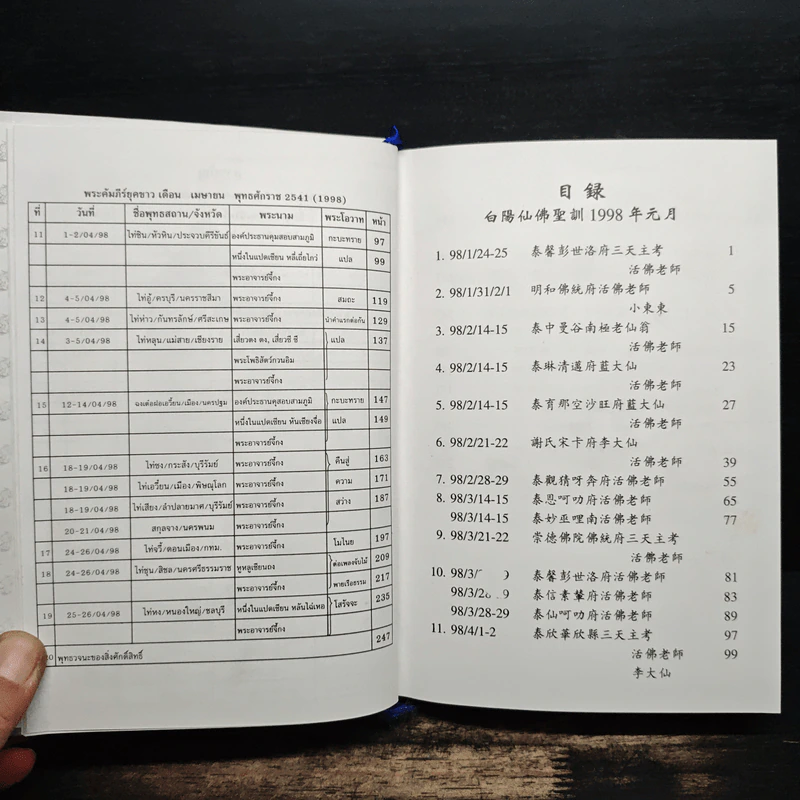 พระคัมภีร์ยุคขาว เดือน เมษายน พุทธศักราช 2541 (1998)
ที่ วันที่ ชื่อพุทธสถาน/จังหวัด พระนาม พระโอวาท หน้า
11 1-2/04/98 ไท่ซิน/หัวหิน/ประจวบคีรีขันธ์ องค์ประธานคุมสอบสามภูมิ กะบะทราย 97
หนึ่งในแปดเซียน หลี่เถี่ยไกว่ แปล 99
พระอาจารย์จี้กง
12 4-5/04/98 ไท่อู้/ครบุรี/นครราชสีมา พระอาจารย์จี้กง สมถะ 119
13 4-5/04/98 ไท่ห่าว/กันทรลักษ์/ศรีสะเกษ พระอาจารย์จี้กง นำคำแรกต่อกัน 129
14 3-5/04/98 ไท่หลุน/แม่สาย/เชียงราย เสี่ยวตง ตง, เสี่ยวซี ซี แปล 137
พระโพธิสัตว์กวนอิม
พระอาจารย์จี้กง
15 12-14/04/98 ฉงเต๋อฝอเอวี้ยน/เมือง/นครปฐม องค์ประธานคุมสอบสามภูมิ กะบะทราย 147
หนึ่งในแปดเซียน หันเซียงจื่อ แปล 149
พระอาจารย์จี้กง
16 18-19/04/98 ไท่ซง/กระสัง/บุรีรัมย์ พระอาจารย์จี้กง คืนสู่ 163
18-19/04/98 ไท่เอวี้ยน/เมือง/พิษณุโลก พระอาจารย์จี้กง ความ 171
18-19/04/98 ไท่เสียง/ลำปลายมาศ/บุรีรัมย์ พระอาจารย์จี้กง สว่าง 187
20-21/04/98 สกุลจาง/นครพนม พระอาจารย์จี้กง
17 24-26/04/98 ไท่จวี้/ดอนเมือง/กทม. พระอาจารย์จี้กง โมไนย 197
18 24-26/04/98 ไท่ชุน/สิชล/นครศรีธรรมราช หูหลูเซียนถง ต่อเพลงจับไม้ 209
พระอาจารย์จี้กง พายเรือธรรม 217
19 25-26/04/98 ไท่หง/หนองใหญ่/ชลบุรี หนึ่งในแปดเซียน หลันไฉ่เหอ โสรัจจะ 235
พระอาจารย์จี้กง
พุทธวจนะของสิ่งศักดิ์สิทธิ์ 247
目錄
白陽仙佛聖訓 1998 年元月
1. 98/1/24-25 泰馨彭世洛府三天主考 1
活佛老師
2. 98/1/31/2/1 明和佛統府活佛老師 5
小東東
3. 98/2/14-15 泰中曼谷南極老仙翁 15
活佛老師
4. 98/2/14-15 泰琳清邁府藍大仙 23
活佛老師
5. 98/2/14-15 泰育那空沙旺府藍大仙 27
活佛老師
6. 98/2/21-22 謝氏宋卡府李大仙
活佛老師 39
7. 98/2/28-29 泰觀猜呀奔府活佛老師 55
8. 98/3/14-15 泰恩呵叻府活佛老師 65
98/3/14-15 泰妙巫哩南活佛老師 77
9. 98/3/21-22 崇德佛院佛統府三天主考
活佛老師
10. 98/3/ 9 泰馨彭世洛府活佛老師 81
98/3/2 9 泰信素輦府活佛老師 83
98/3/28-29 泰仙呵叻府活佛老師 89
11. 98/4/1-2 泰欣華欣縣三天主考 97
活佛老師 99
李大仙